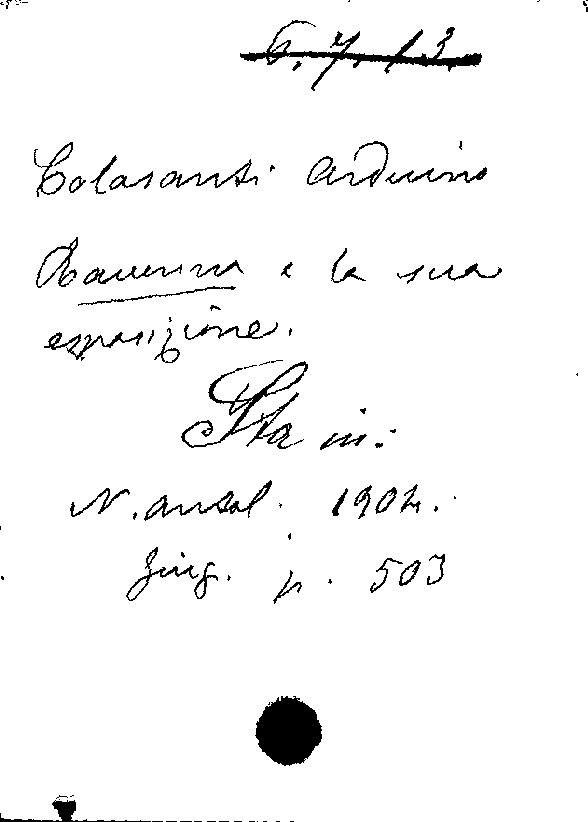 6.7.13
Colasanti Arduino
Ravenna e la sua
esposizione.
Sta in:
N. antol. 1904.
giug. p. 503